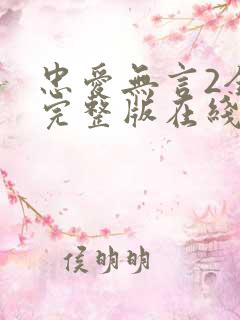 忠愛無言2
完整版在綫
侯明明